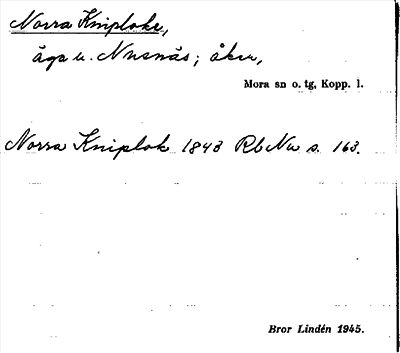 Norra Kniploke,
äga u. Nusnäs; åker,
Mora sn o. tg, Kopp. l.
Norra Kniplok 1843 RbNu s. 163.
Bror Lindén 1945.